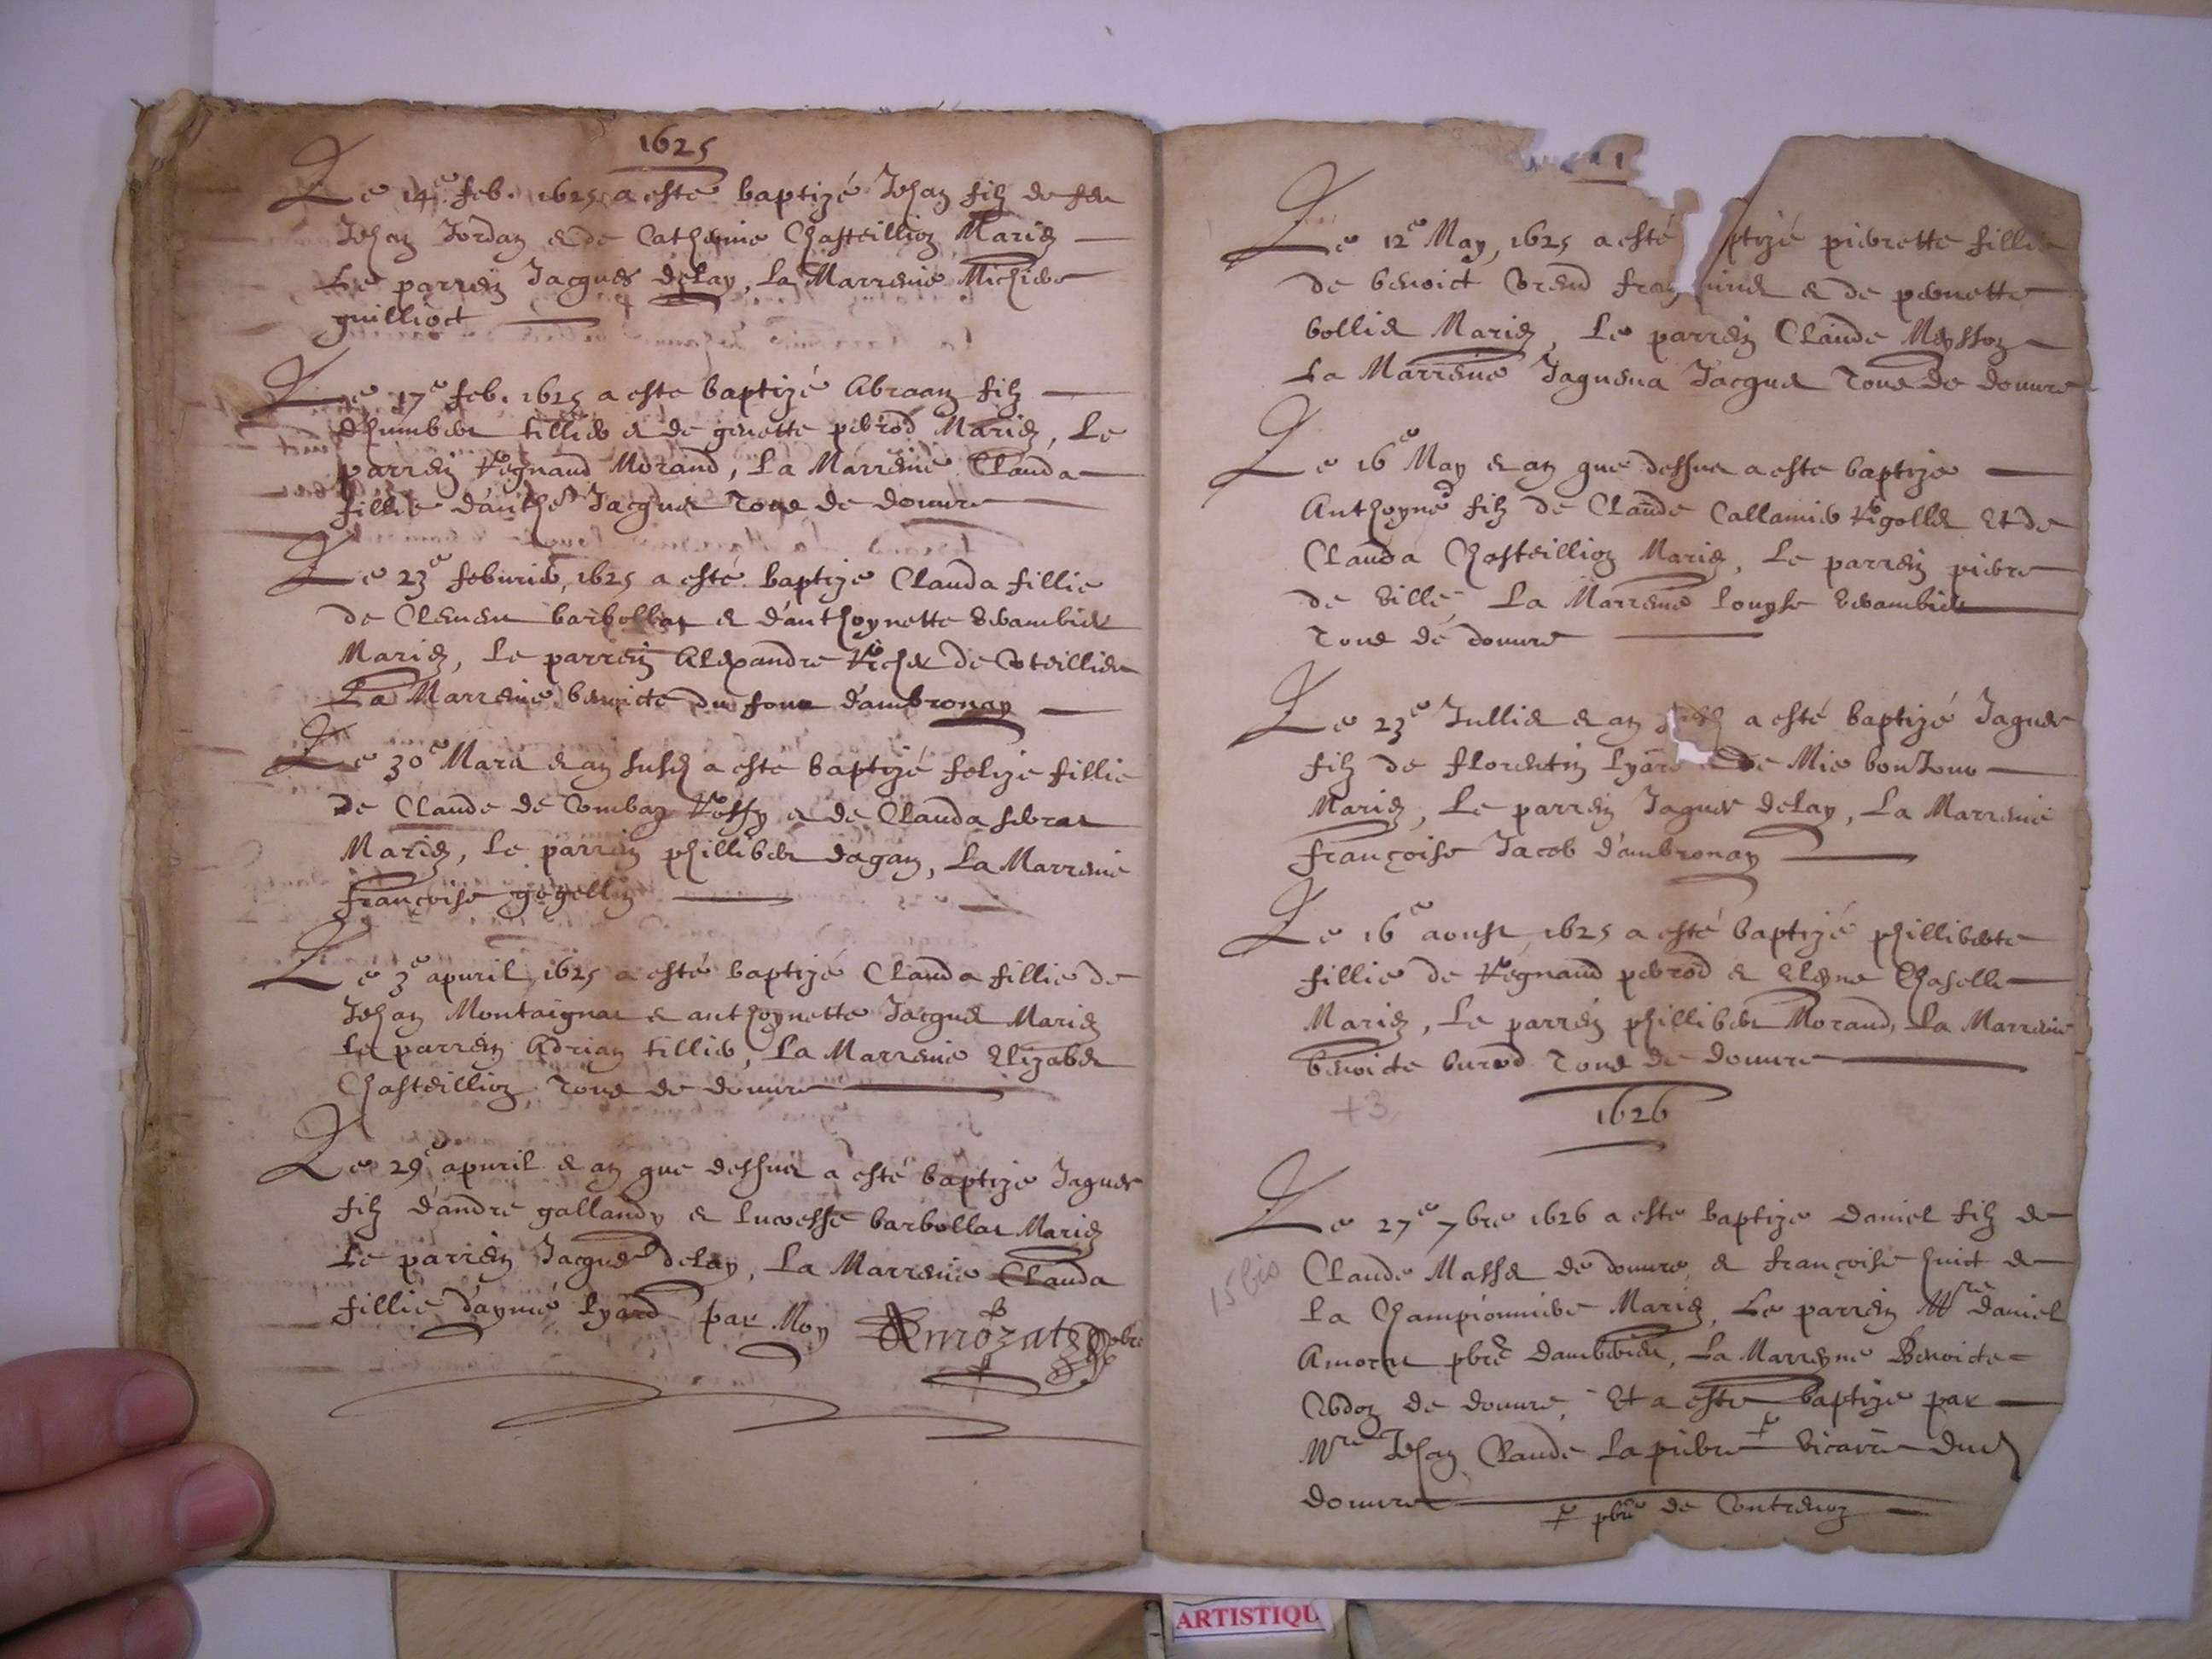 1625
Le 14e feb. 1625 a esté baptizé Jehan filz de feu
Jehan Jordan & de Catherine Chasteillion Mariez
Le parrein Jacques deLay, La Marreine Michiere
guillioct
Le 17e feb. 1625 a este baptizé Abraam filz
d'humbert tillier & de genette perrod Mariez, Le
parrein Regnaud Morand, La Marreine Clauda
fillie d'anthe Jacques Tous de douvre
Le 23e feburier, 1625 a esté baptize Clauda fillie
de Clement barbollat & d'anthoynette
Mariez, Le parrein Alexandre Richer de
La Marreine benoicte du four d'ambronay
Le 30e Mars & an susd a esté baptizé felize fillie
de Claude de Combaz Rossy & de Clauda
Mariez, Le parrein phillibert dagan, La Marreine
françoise gogellin
Le 3e apuril 1625 a esté baptizé Clauda fillie de
Jehan Montaignat & anthoynette Jacques Mariez
Le parrein Adrian tillier, La Marreine Elizabet
Chasteillion, Tous de douvre
Le 29e apuril & an que dessus a esté baptize Jaques
filz d'andré gallandy & barbollat Mariez
Le parrein Jacques deLay, La Marreine Clauda
fillie d'aymé Lyard par Moy Amozat pbre
Le 12e May, 1625 a esté ptizé pierrette fillie
de benoict & de pernette
bollie Mariez, Le parrein Claude Meysson
La Marreine Jaquema Jacques Tous de douvre
Le 16e May & an que dessus a este baptize
Anthoyne filz de Claude Callamier Rigollet Et de
Clauda Chasteillion Mariez, Le parrein pierre
de Ville, La Marreine Louyse
Tous de douvre
Le 23e Jullie & an a esté baptizé Jaques
filz de florentin Lyard & de Mie bonJour
Mariez, Le parrein Jaques deLay, La Marreine
françoise Jacob d'ambronay
Le 16e aoust 1625 a esté baptizé philliberte
fillie de Regnaud perrod & Eleyne Chaselle
Mariez, Le parrein phillibert Morand, La Marreine
benoicte burod Tous de douvre
+3
1626
Le 27e 7bre 1626 a este baptize daniel filz de
15bis
Claude Masse de douvre & françoise huict de
La Championniere Mariez, Le parrein Mre daniel
Amorat pbre La Marreyne Benoicte
de douvre, Et a este baptize par
Mre Jehan Claude Lapierre vicaire dud
douvre
pbre de Contrevoz
ARTISTIQU